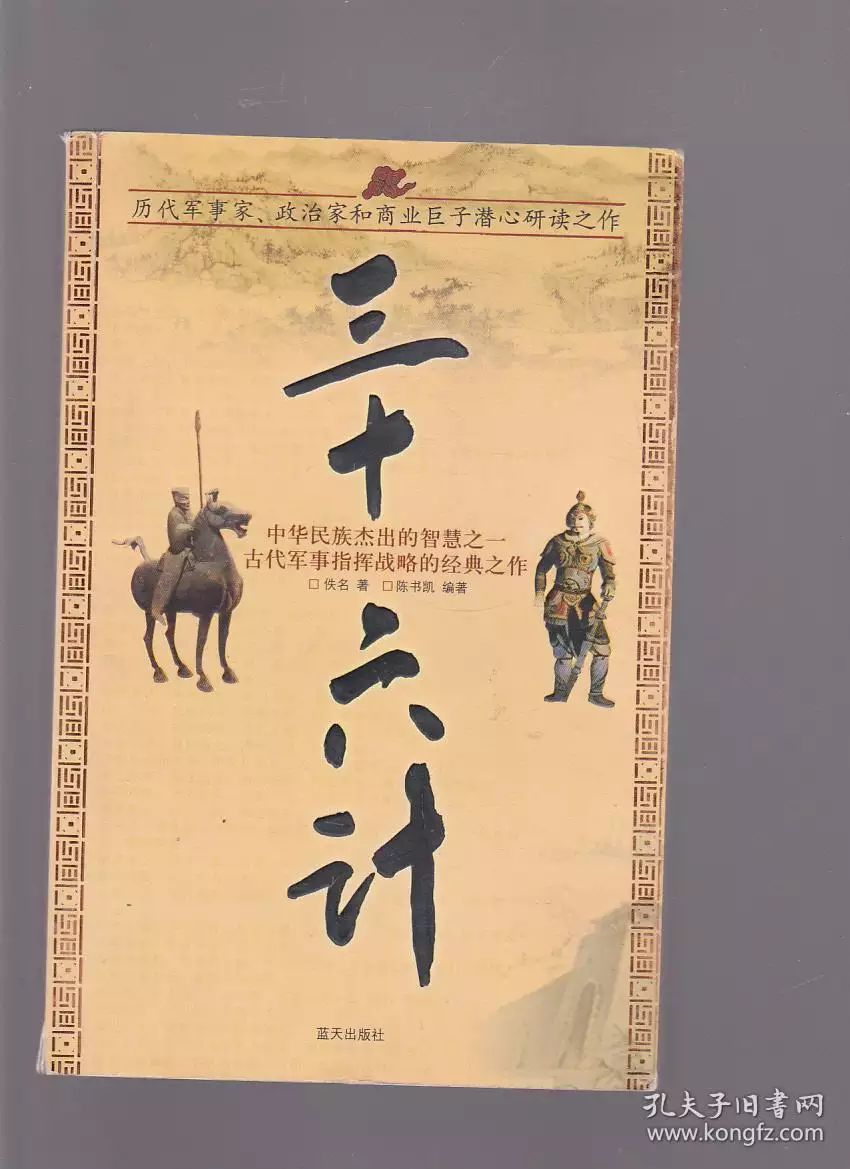 历代军事家、政治家和商业巨子潜心研读之作
三十六计
中华民族杰出的智慧之一
古代军事指挥战略的经典之作
□佚名 著 □陈书凯 编著
蓝天出版社
孔夫子旧书网
www.kongfz.com